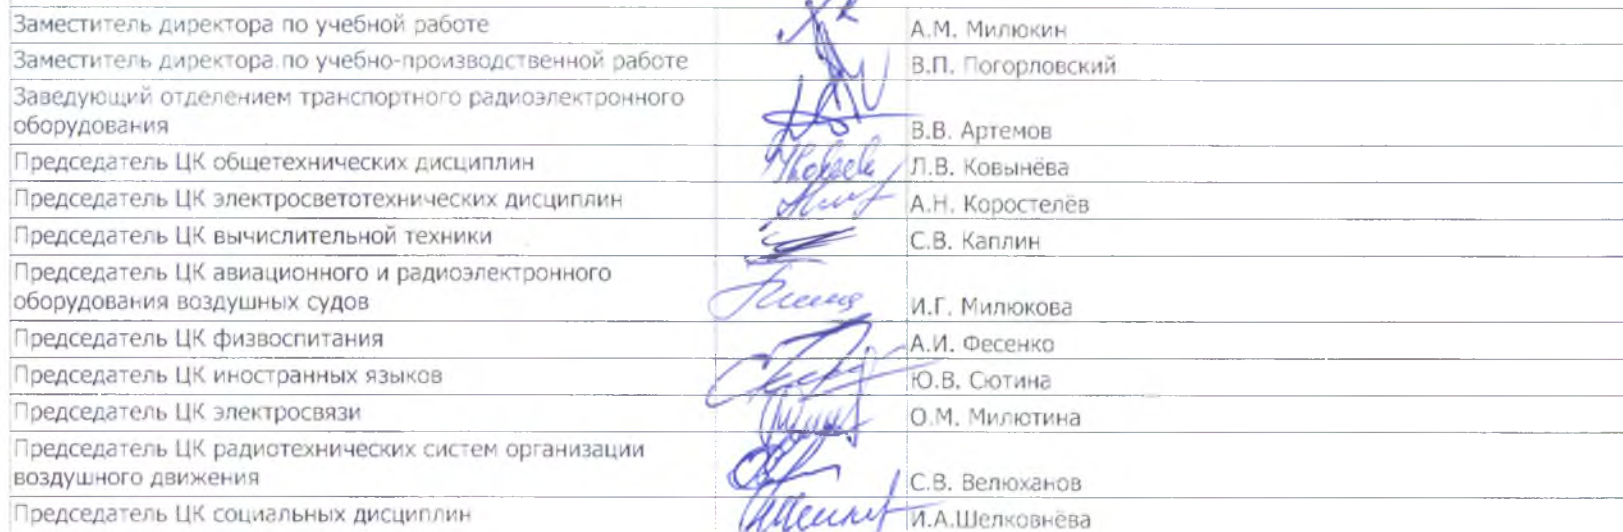 Заместитель директора по учебной работе А.М. Милюкин
Заместитель директора по учебно-производственной работе В.П. Погорловский
Заведующий отделением транспортного радиоэлектронного
оборудования В.В. Артемов
Председатель ЦК общетехнических дисциплин Л.В. Ковынёва
Председатель ЦК электросветотехнических дисциплин А.Н. Коростелёв
Председатель ЦК вычислительной техники С.В. Каплин
Председатель ЦК авиационного и радиоэлектронного
оборудования воздушных судов И.Г. Милюкова
Председатель ЦК физвоспитания А.И. Фесенко
Председатель ЦК иностранных языков Ю.В. Сютина
Председатель ЦК электросвязи О.М. Милютина
Председатель ЦК радиотехнических систем организации
воздушного движения С.В. Велюханов
Председатель ЦК социальных дисциплин И.А.Шелковнёва